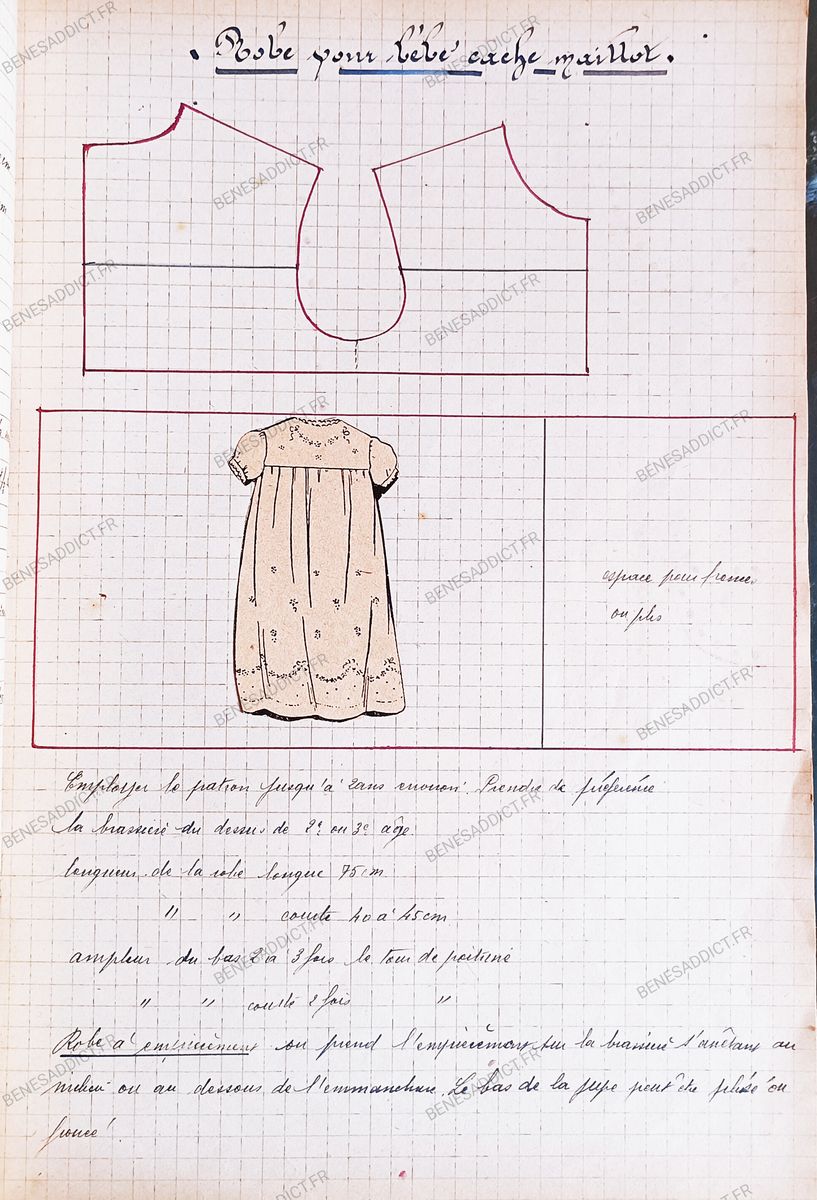 . Robe pour bébé cache maillot.
espace pour froncer
ou plis
Employer le patron jusqu'à 2ans environ. Prendre de préférence
la brassière du dessus de 2e ou 3e âge
longueur de la robe longue 75cm
" " courte 40 à 45cm
ampleur du bas 2 à 3 fois le tour de poitrine
" " courte 2 fois "
Robe à empiècement on prend l'empiècement sur la brassière s'arrêtant au
milieu ou au dessous de l'emmanchure. Le bas de la jupe peut être plissé ou
froncé
BENESADDICT.FR